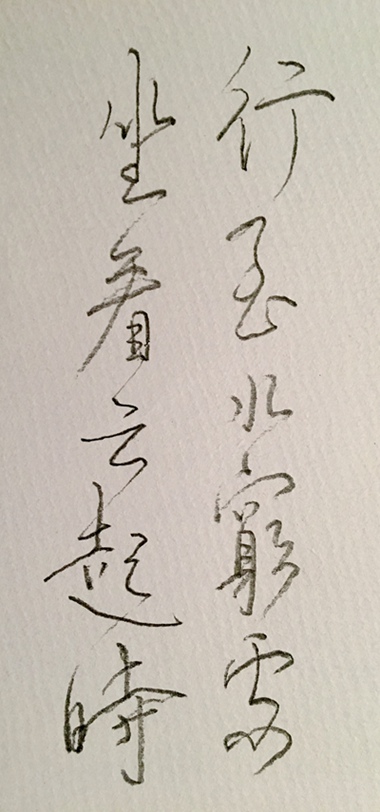 行至水窮處
坐看云起時